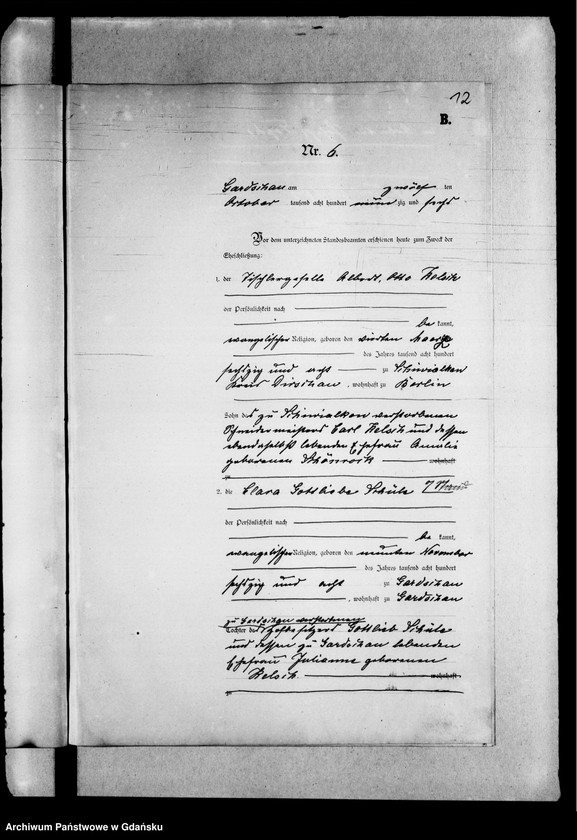 12
B.
Nr. 6.
Gardschau am zwölf ten
October tausend acht hundert neun zig und sechs
Vor dem unterzeichneten Standesbeamten erschienen heute zum Zweck der
Eheschließung:
1. der Tischlergeselle Albert Otto
der Persönlichkeit nach
be kannt,
evangelischer Religion, geboren den vierten Maerz
des Jahres tausend acht hundert
sechszig und acht zu Schiwialken
Kreis Dirschau, wohnhaft zu Berlin
Sohn des zu Schiwialken verstorbenen
Schneidermeisters Carl und dessen
ebendaselbst lebenden Ehefrau Amalie
geborenen Schönrock wohnhaft
zu
2. die Clara Gottliebe Schülz
der Persönlichkeit nach
be kannt,
evangelischer Religion, geboren den neunten November
des Jahres tausend acht hundert
sechszig und acht zu Gardschau
, wohnhaft zu Gardschau
zu Gardschau verstorbenen
Tochter des Hofbesitzers Gottlieb Schülz
und dessen zu Gardschau lebenden
Ehefrau Julianne geborenen
wohnhaft
zu
Archiwum Państwowe w Gdańsku